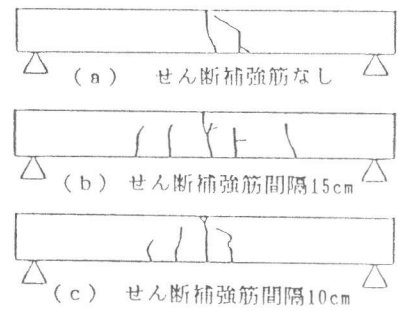 (a) せん断補強筋なし
(b) せん断補強筋間隔15cm
(c) せん断補強筋間隔10cm